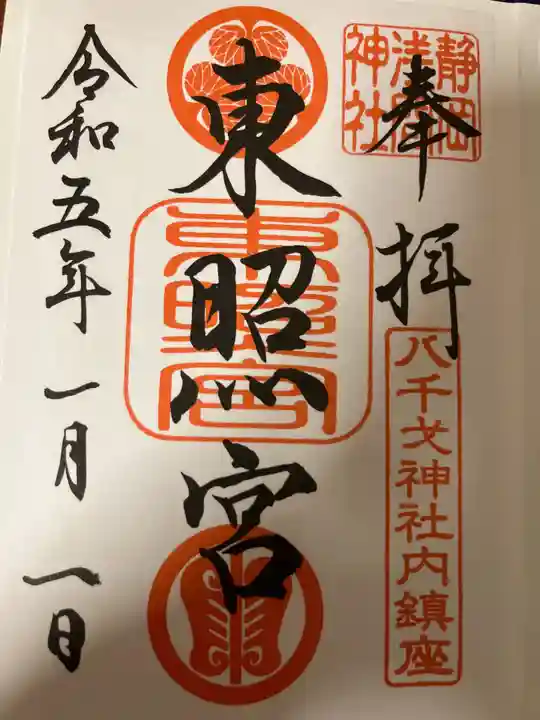 奉拝
静岡
浅間
神社
八千戈神社内鎮座
東照宮
東照宮
令和五年一月一日